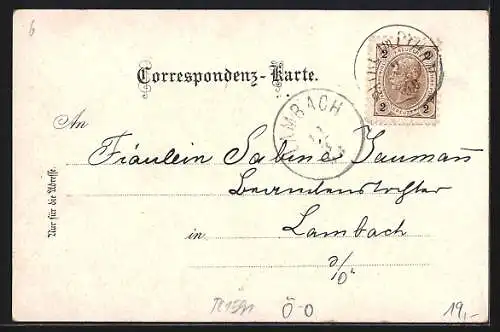 6
Correspondenz-Karte.
2 2
2 2
LAMBACH
An
Fräulein Sabine Naumann
Beamtenstochter
in Lambach
O/Ö
Nur für die Adresse.
Ö-O
19,-